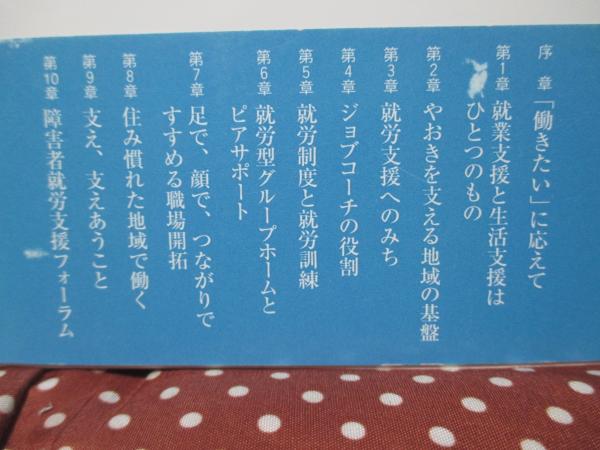 序　章　「働きたい」に応えて
第1章　就業支援と生活支援は
ひとつのもの
第2章　やおきを支える地域の基盤
第3章　就労支援へのみち
第4章　ジョブコーチの役割
第5章　就労制度と就労訓練
第6章　就労型グループホームと
ピアサポート
第7章　足で、顔で、つながりで
すすめる職場開拓
第8章　住み慣れた地域で働く
第9章　支え、支えあうこと
第10章　障害者就労支援フォーラム